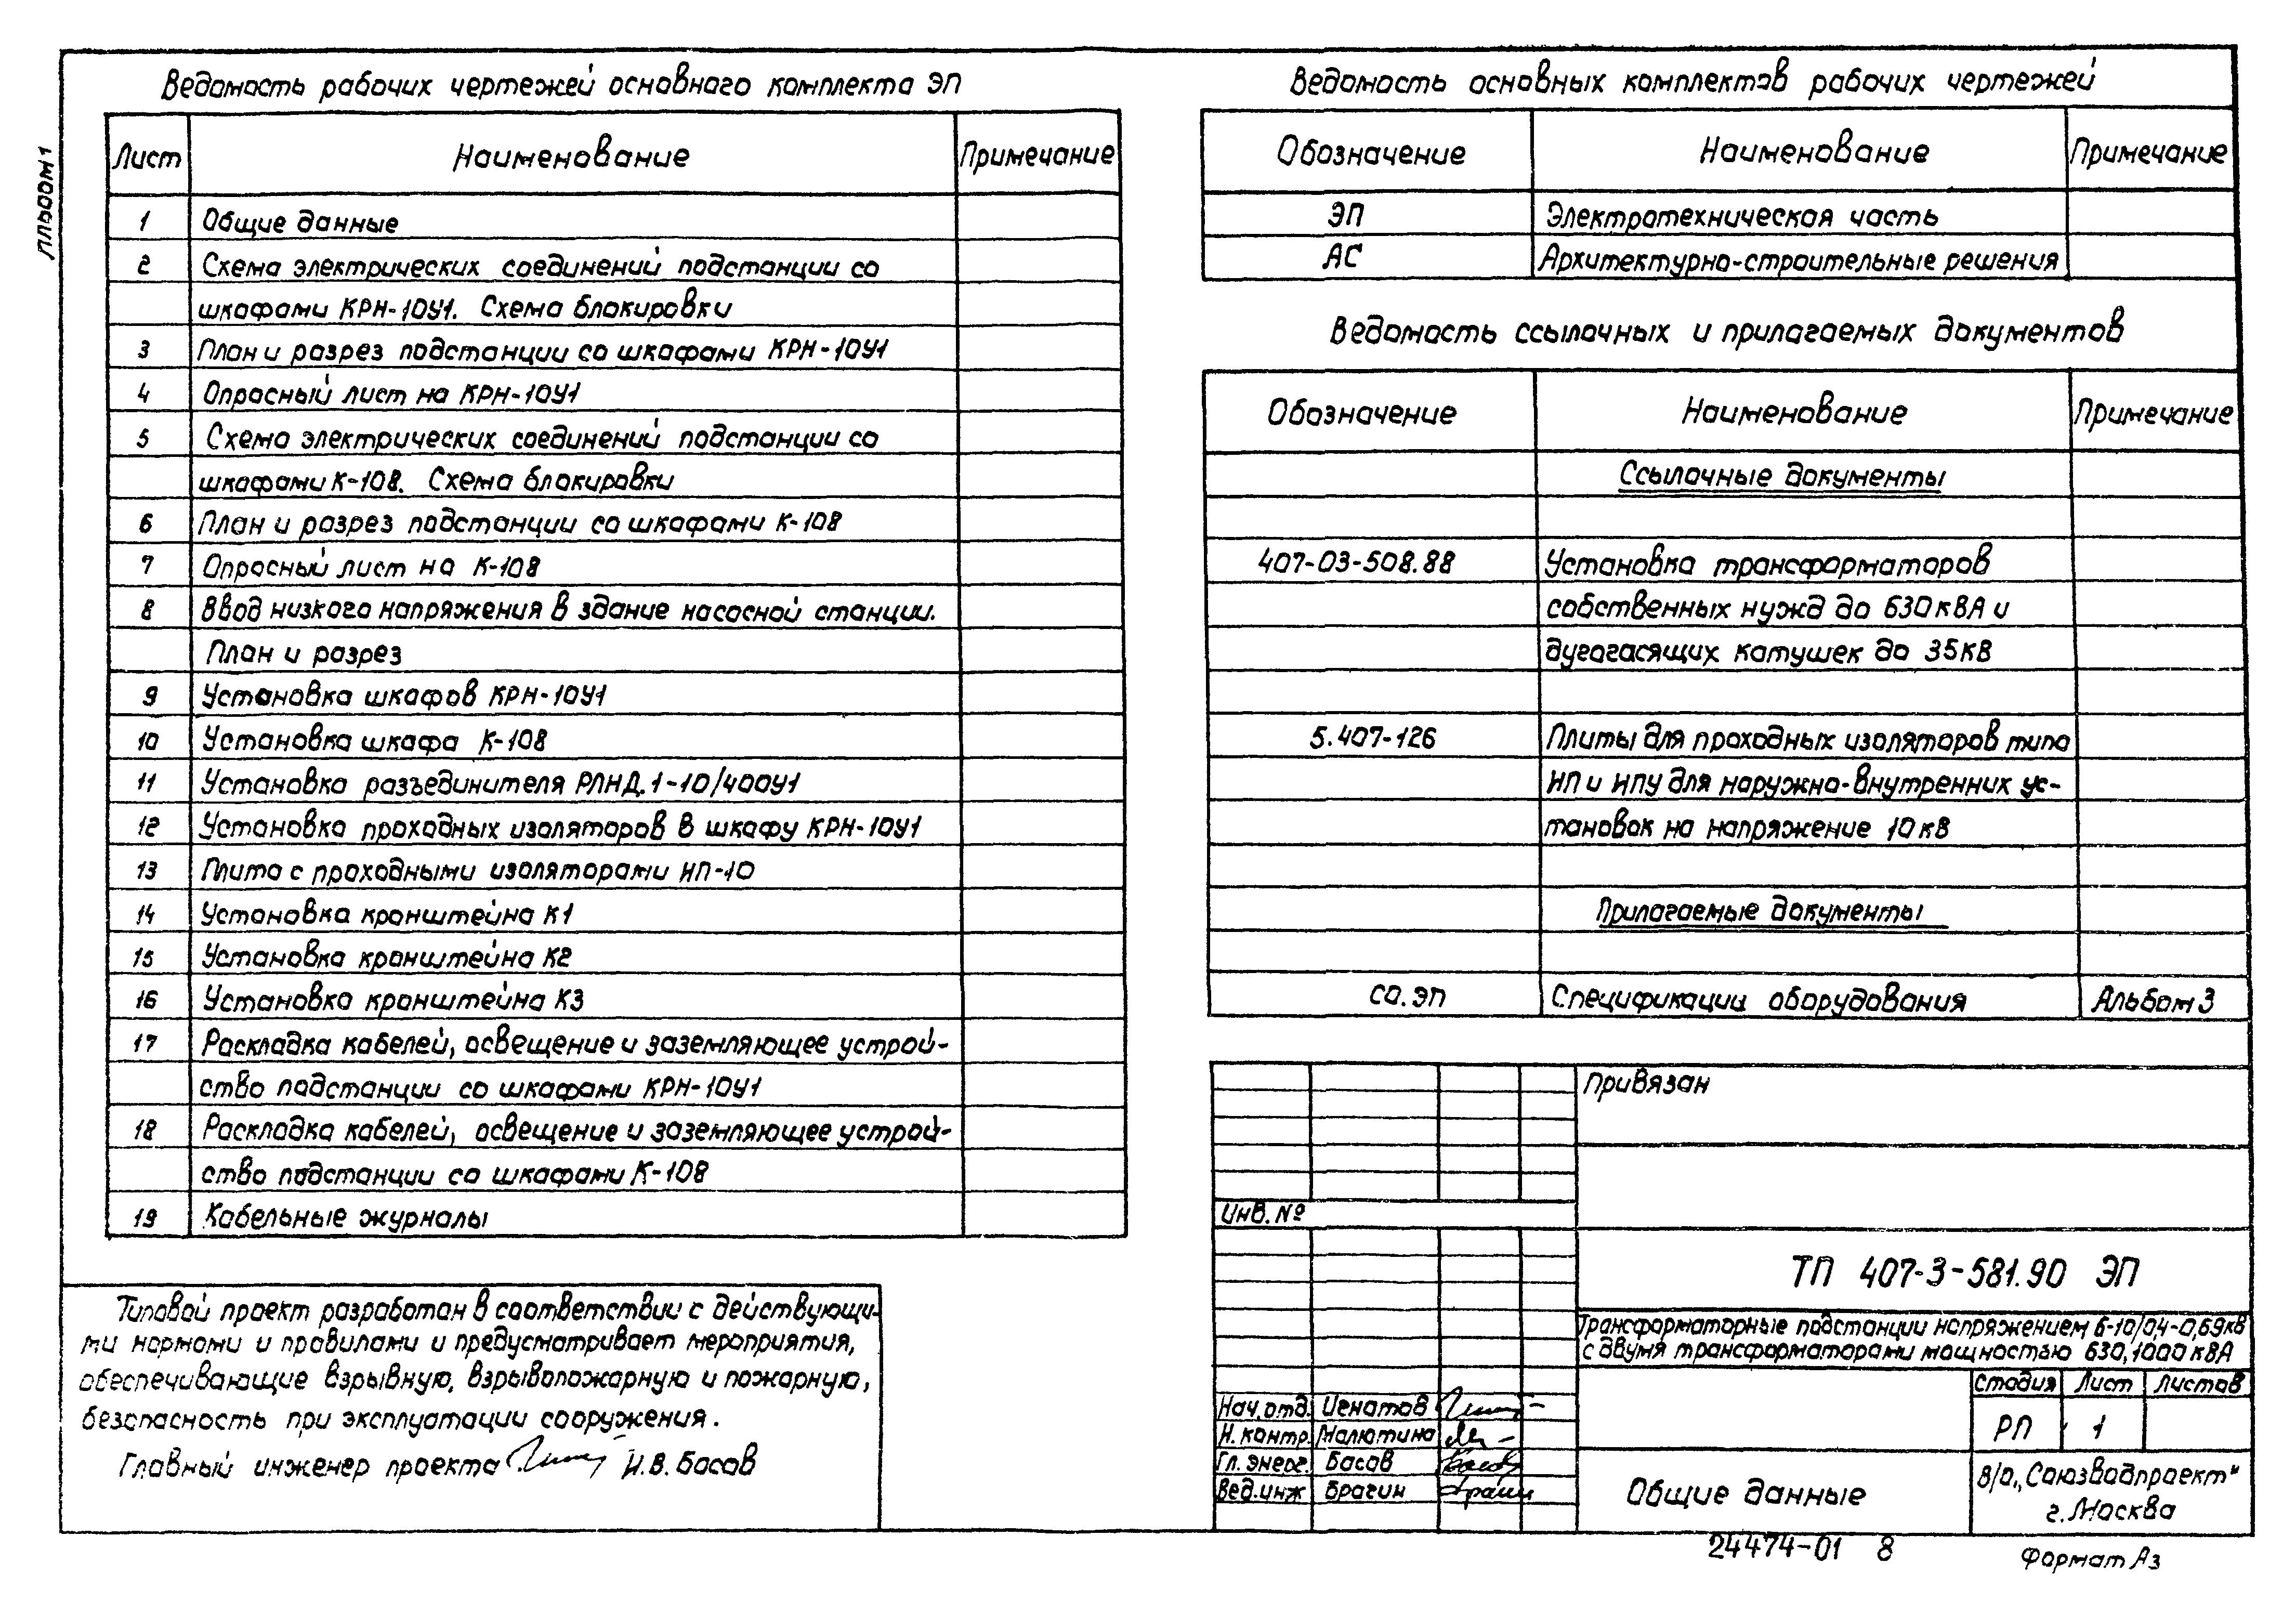 Альбом 1
Ведомость рабочих чертежей основного комплекта ЭП
Лист Наименование Примечание
1 Общие данные
2 Схема электрических соединений подстанции со
шкафами КРН-10У1. Схема блокировки
3 План и разрез подстанции со шкафами КРН-10У1
4 Опросный лист на КРН-10У1
5 Схема электрических соединений подстанции со
шкафами К-108. Схема блокировки
6 План и разрез подстанции со шкафами К-108
7 Опросный лист на К-108
8 Ввод низкого напряжения в здание насосной станции.
План и разрез
9 Установка шкафов КРН-10У1
10 Установка шкафа К-108
11 Установка разъединителя РЛНД.1-10/400У1
12 Установка проходных изоляторов в шкафу КРН-10У1
13 Плита с проходными изоляторами ИП-10
14 Установка кронштейна К1
15 Установка кронштейна К2
16 Установка кронштейна К3
17 Раскладка кабелей, освещение и заземляющее устрой-
ство подстанции со шкафами КРН-10У1
18 Раскладка кабелей, освещение и заземляющее устрой-
ство подстанции со шкафами К-108
19 Кабельные журналы
Типовой проект разработан в соответствии с действующи-
ми нормами и правилами и предусматривает мероприятия,
обеспечивающие взрывную, взрывопожарную и пожарную,
безопасность при эксплуатации сооружения.
Главный инженер проекта И.В. Басов
Ведомость основных комплектов рабочих чертежей
Обозначение Наименование Примечание
ЭП Электротехническая часть
АС Архитектурно-строительные решения
Ведомость ссылочных и прилагаемых документов
Обозначение Наименование Примечание
Ссылочные документы
407-03-508.88 Установка трансформаторов
собственных нужд до 630кВА и
дугогасящих катушек до 35кВ
5.407-126 Плиты для проходных изоляторов типа
ИП и ИПУ для наружно-внутренних ус-
тановок на напряжение 10кВ
Прилагаемые документы
СО.ЭП Спецификации оборудования Альбом 3
Привязан
Инв. №
ТП 407-3-581.90 ЭП
Трансформаторные подстанции напряжением 6-10/0,4-0,69кВ
с двумя трансформаторами мощностью 630, 1000 кВА
Стадия Лист Листов
РП 1
Нач. отд. Игнатов
Н. контр. Малютина
Гл. энерг. Басов
Вед. инж Брагин
Общие данные
В/О „Союзводпроект"
г. Москва
24474-01 8
Формат А3